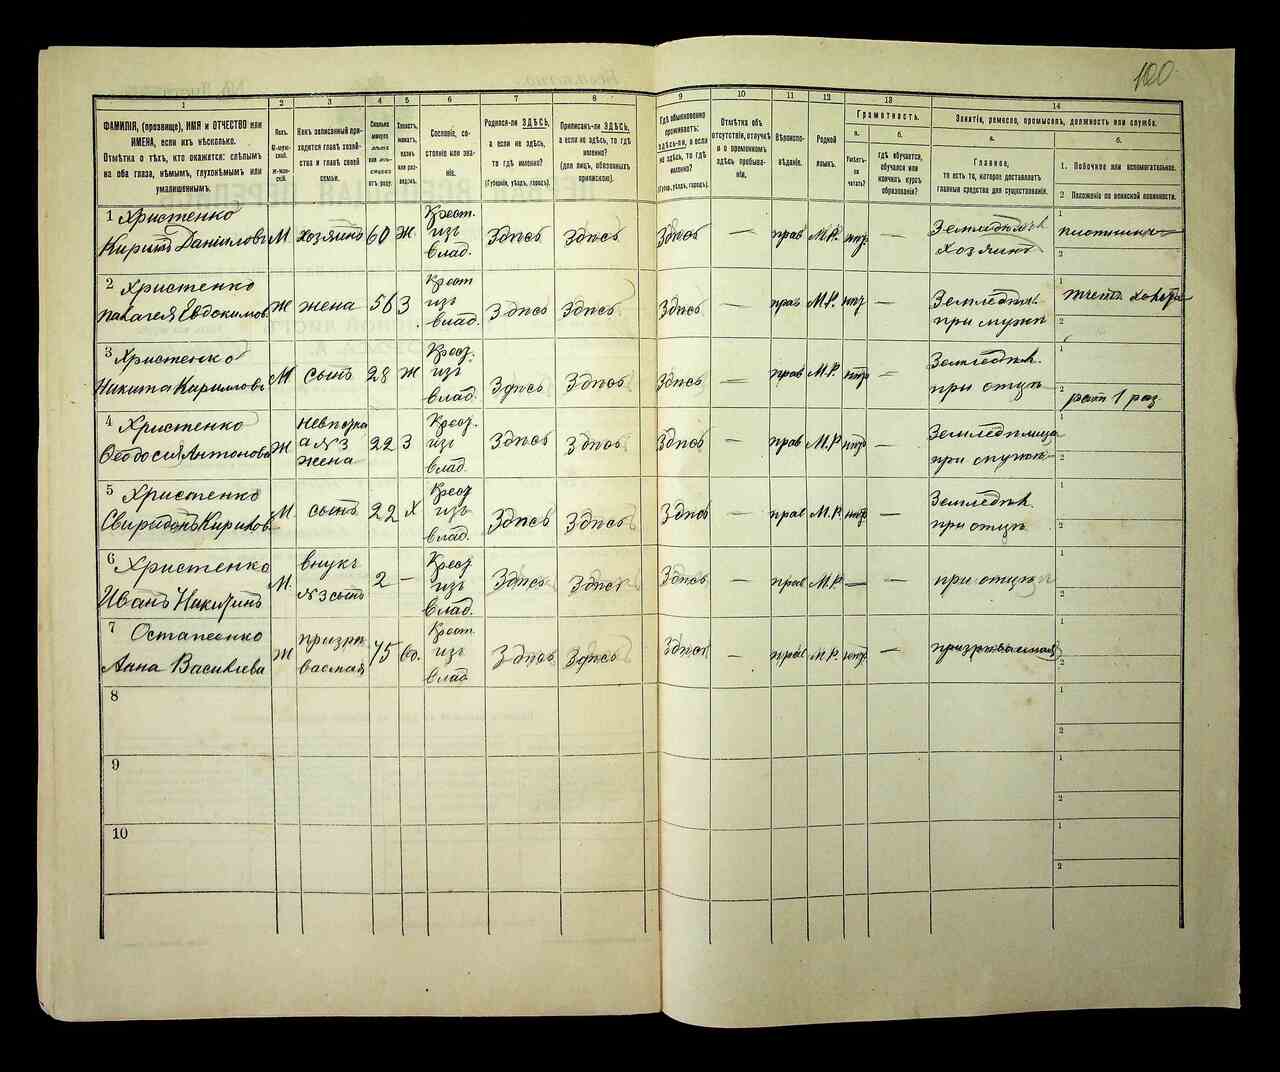 100
1
2
3
4
5
6
7
8
9
10
11
12
13
14
ФАМИЛІЯ, (прозвище), ИМЯ и ОТЧЕСТВО или
ИМЕНА, если ихъ нѣсколько.
Отмѣтка о тѣхъ, кто окажется: слѣпымъ
на оба глаза, нѣмымъ, глухонѣмымъ или
умалишеннымъ.
Полъ.
М-мужской.
Ж-женскій.
Какъ записанный при-
ходится главѣ хозяй-
ства и главѣ своей
семьи.
Сколько
минуло
лѣтъ
Холостъ,
женатъ,
вдовъ
или раз-
веденъ.
Сословіе, со-
стояніе или зва-
ніе.
Родился-ли ЗДѢСЬ,
а если не здѣсь,
то гдѣ именно?
(Губернія, уѣздъ, городъ).
Приписанъ-ли ЗДѢСЬ,
а если не здѣсь, то гдѣ
именно?
(для лицъ, обязанныхъ
припиской).
Гдѣ обыкновенно
проживаетъ:
здѣсь-ли, а если
не здѣсь, то гдѣ
именно?
(Губерн., уѣздъ, городъ).
Отмѣтка объ
отсутствіи, отлучкѣ
и о временномъ
здѣсь пребыва-
ніи.
Вѣроиспо-
вѣданіе.
Родной
языкъ.
Грамотность.
а.
Умѣетъ-
ли
читать?
б.
гдѣ обучается,
обучался или
кончилъ курсъ
образованія?
Занятіе, ремесло, промыселъ, должность или служба.
а.
Главное,
то есть то, которое доставляетъ
главныя средства для существованія.
б.
1. Побочное или вспомогательное.
2 Положеніе по воинской повинности.
1 Христенко
Кирилъ Даниловъ М хозяинъ 60 Ж. Крест. изъ влад. Здѣсь Здѣсь Здѣсь — прав М.Р. — Земледѣлецъ хозяинъ 1 2
2 Христенко
Евдокимов. Ж жена 56 З Крест изъ влад. Здѣсь Здѣсь Здѣсь — прав М.Р. — при мужѣ 1 2
3 Христенко
Никита Кириловъ М сынъ 28 Ж изъ влад. Здѣсь Здѣсь Здѣсь — прав М.Р. — при отцѣ 1 2 1 раз
4 Христенко
Ѳеодосія Антонова Ж невѣстка №3 жена 22 З изъ влад. Здѣсь Здѣсь Здѣсь — прав М.Р. — при мужѣ 1 2
5 Христенко
Свиридонъ Кирилов. М. сынъ 22 Х изъ влад. Здѣсь Здѣсь Здѣсь — прав М.Р. — при отцѣ 1 2
6 Христенко
Иванъ Никитинъ М. внукъ №3 сынъ 2 — изъ влад. Здѣсь Здѣсь Здѣсь — прав М.Р. — — при отцѣ 1 2
7 Остапенко
Анна Василева Ж 75 Крест. изъ влад Здѣсь Здѣсь Здѣсь — прав М.Р. — 1 2
8 1 2
9 1 2
10 1 2